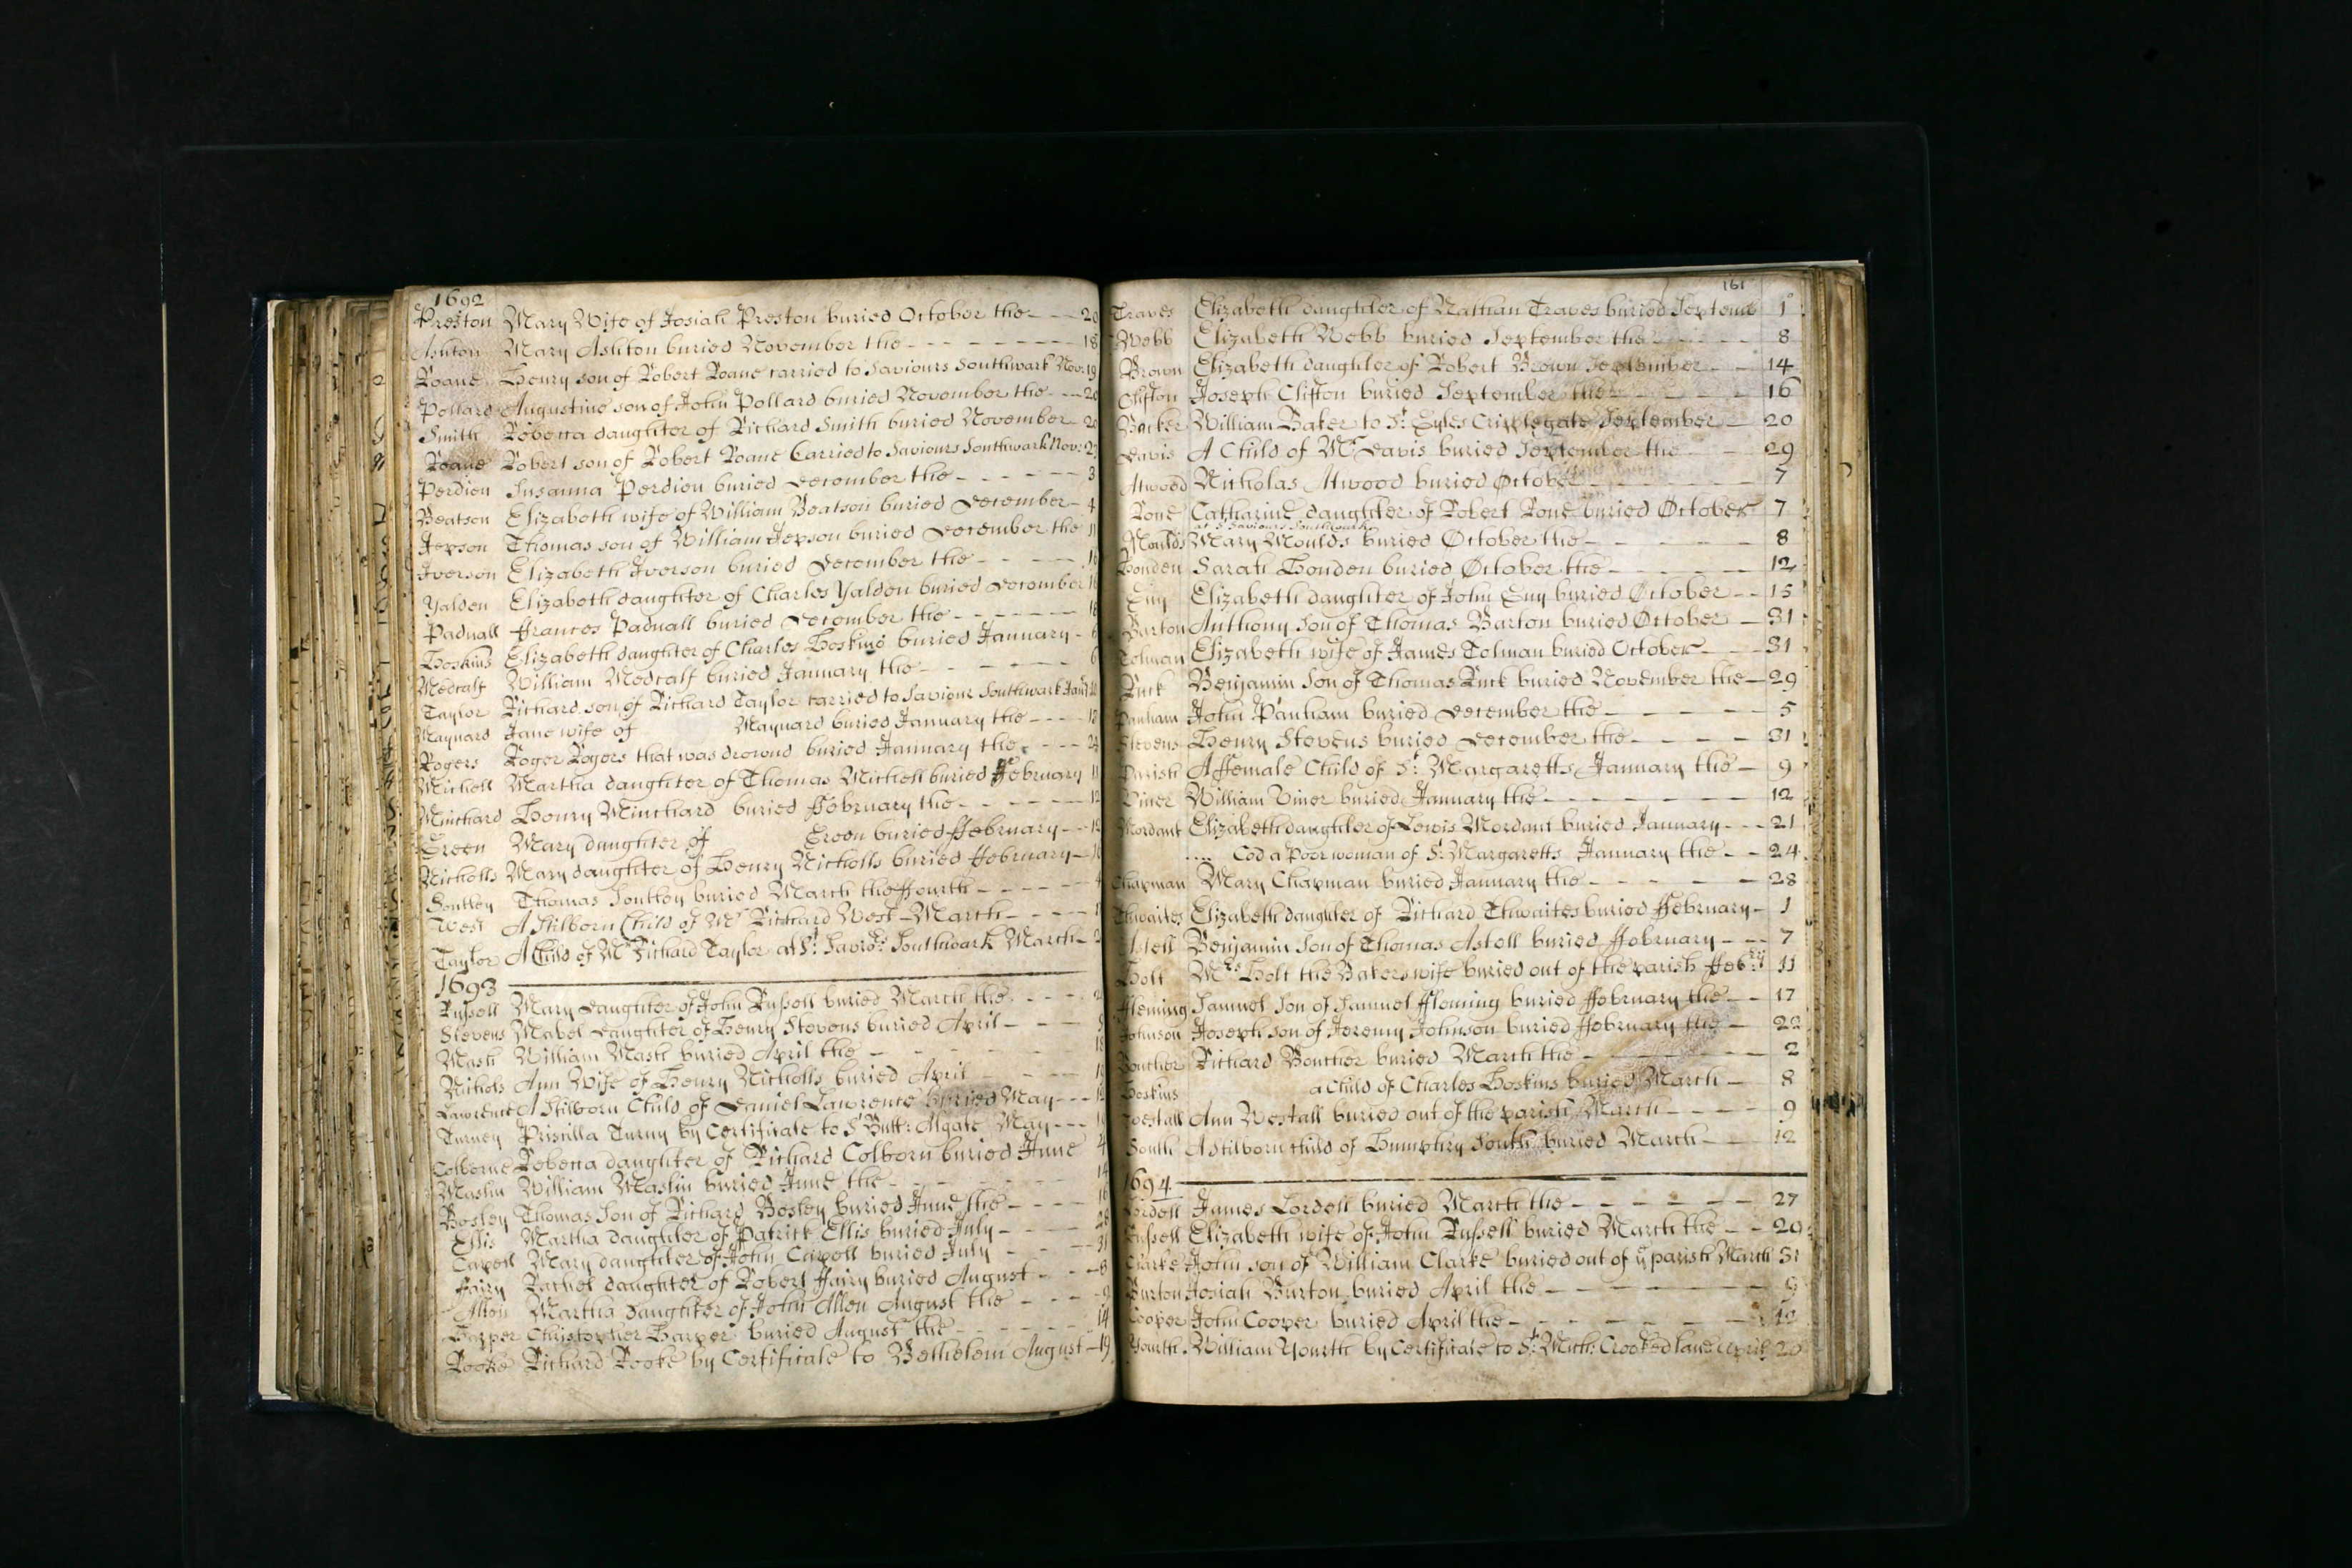 1692
Preston Mary Wife of Josiah Preston buried October the - - - 20
Ashton Mary Ashton buried November the - - - - - - - - 18
Roane Henry son of Robert Roane carried to Saviours Southwark Nov: 19
Pollard Augustine son of John Pollard buried November the - - - 20
Smith Rebecca daughter of Richard Smith buried November 20
Roane Robert son of Robert Roane Carried to Saviours Southwark Nov: 23
Perdien Susanna Perdien buried December the - - - - - 3
Beatson Elizabeth wife of William Beatson buried December - 4
Jepson Thomas son of William Jepson buried December the 11
Iverson Elizabeth Iverson buried December the - - - - - 16
Yalden Elizabeth daughter of Charles Yalden buried December 16
Paduall ffrances Paduall buried December the - - - - - - 18
Hoskins Elizabeth daughter of Charles Hoskins buried January - 6
Medcalf William Medcalf buried January the - - - - - - 6
Taylor Richard son of Richard Taylor carried to Saviour Southwark Jany
Maynard Jane wife of Maynard buried January the - - - 18
Rogers Roger Rogers that was drownd buried January the - - - 24
Michell Martha daughter of Thomas Michell buried ffebruary 11
Minchard Henry Minchard buried ffebruary the - - - - - - 12
Green Mary daughter of Green buried ffebruary - -
Nicholls Mary daughter of Henry Nicholls buried ffebruary -
Sontley Thomas Sontley buried March the ffourth - - - - - 4
West A Stilborn Child of Mr Richard West - March - - - -
Taylor A Child of Mr Richard Taylor at St. Savirs: Southwark March -
1693
Russell Mary Daughter of John Russell buried March the - - -
Stevens Mabel Daughter of Henry Stevens buried April - - -
Mash William Mash buried April the - - - - - 18
Nichols Ann Wife of Henry Nicholls buried April - - - -
Lawrence A Stilborn Child of Daniel Lawrence buried May - - -
Turney Priscilla Turny by Certificate to St Butt: Algate May - - -
Colborne Rebecca daughter of Richard Colborn buried June 4
Maslin William Maslin buried June the - - - - - - 14
Bosley Thomas Son of Richard Bosley buried June the - - - - 16
Ellis Martha daughter of Patrick Ellis buried July - - - - 28
Capell Mary daughter of John Capell buried July - - - 31
Fairy Rachel daughter of Robert ffairy buried August - - - 8
Allen Martha daughter of John Allen August the - - - 9
Harper Christopher Harper buried August the - - - - - - 14
Rooke Richard Rooke by Certificate to Bethelem August - 19
161
Traves Elizabeth daughter of Nathan Traves buried Septemb 1
Webb Elizabeth Webb buried September the - - - - 8
Brown Elizabeth daughter of Robert Brown September - - 14
Clifton Joseph Clifton buried September the - - - - 16
Backer William Baker to St. Gyles Cripplegate September - 20
Davis A Child of Mr Davis buried September the - - 29
Atwood Nicholas Atwood buried October - - - - - - - 7
Rone Catharine daughter of Robert Rone buried October 7
at St Saviours Southwark
Moulds Mary Moulds buried October the - - - - - - 8
Houden Sarah Houden buried October the - - - - - - 12
Guy Elizabeth daughter of John Guy buried October - - 15
Barton Anthony Son of Thomas Barton buried October - 31
Tolman Elizabeth wife of James Tolman buried October - - - 31
Ruck Benjamin Son of Thomas Ruck buried November the - 29
Panham John Panham buried December the - - - - - - 5
Stevens Henry Stevens buried December the - - - - - 31
Parish A ffemale Child of St. Margaretts January the - 9
Viner William Viner buried January the - - - - - - - 12
Mordant Elizabeth daughter of Lewis Mordant buried January - - - 21
.... Cod a poor woman of St. Margaretts January the - - 24
Chapman Mary Chapman buried January the - - - - - 28
Thwaites Elizabeth daughter of Richard Thwaites buried ffebruary - 1
Astell Benjamin Son of Thomas Astell buried ffebruary - - - 7
Holt Mrs Holt the Bakers wife buried out of the parish ffebry 11
ffleming Samuel Son of Samuel ffleming buried ffebruary the - - 17
Johnson Joseph son of Jeremy Johnson buried ffebruary the - 22
Boucher Richard Boucher buried March the - - - - - 2
Hoskins a Child of Charles Hoskins buried March - 8
Westall Ann Westall buried out of the parish March - - - - 9
South A stilborn child of Humphry South buried March - - 12
1694
Lordell James Lordell buried March the - - - - - - - 27
Russell Elizabeth wife of John Russell buried March the - - 29
Clarke John son of William Clarke buried out of ye parish March 31
Burton Josiah Burton buried April the - - - - - - - 9
Cooper John Cooper buried April the - - - - - - - 12
Yourth William Yourth by Certificate to St. Mich: Crooked lane April 20